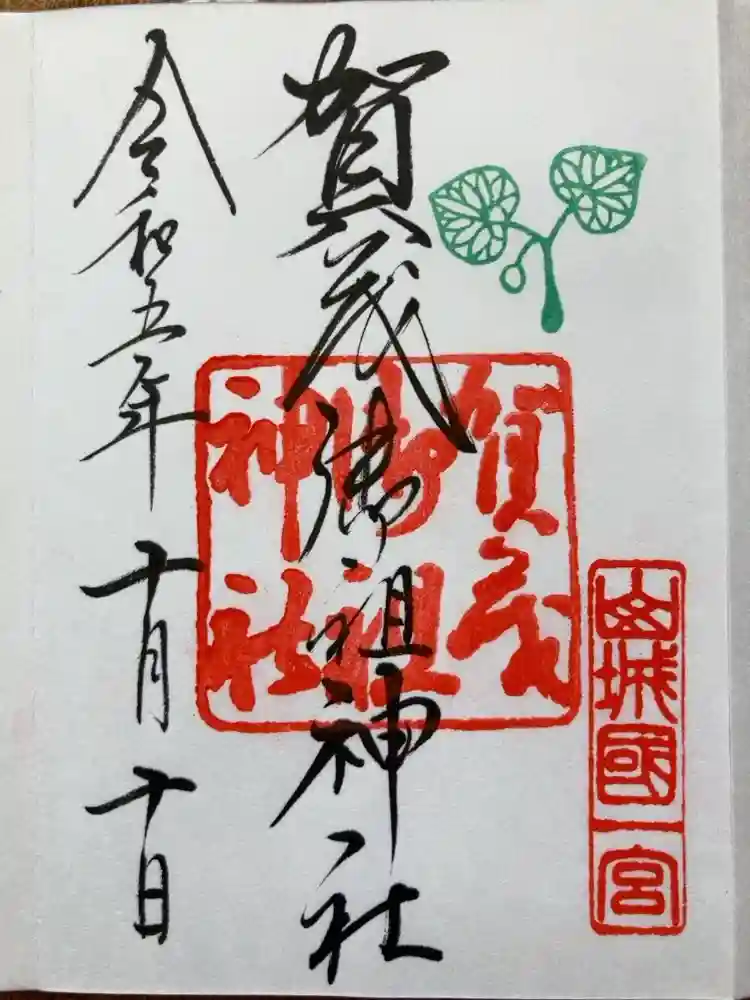 山城國一宮
賀茂御祖神社
賀茂御祖神社
令和五年十月十日